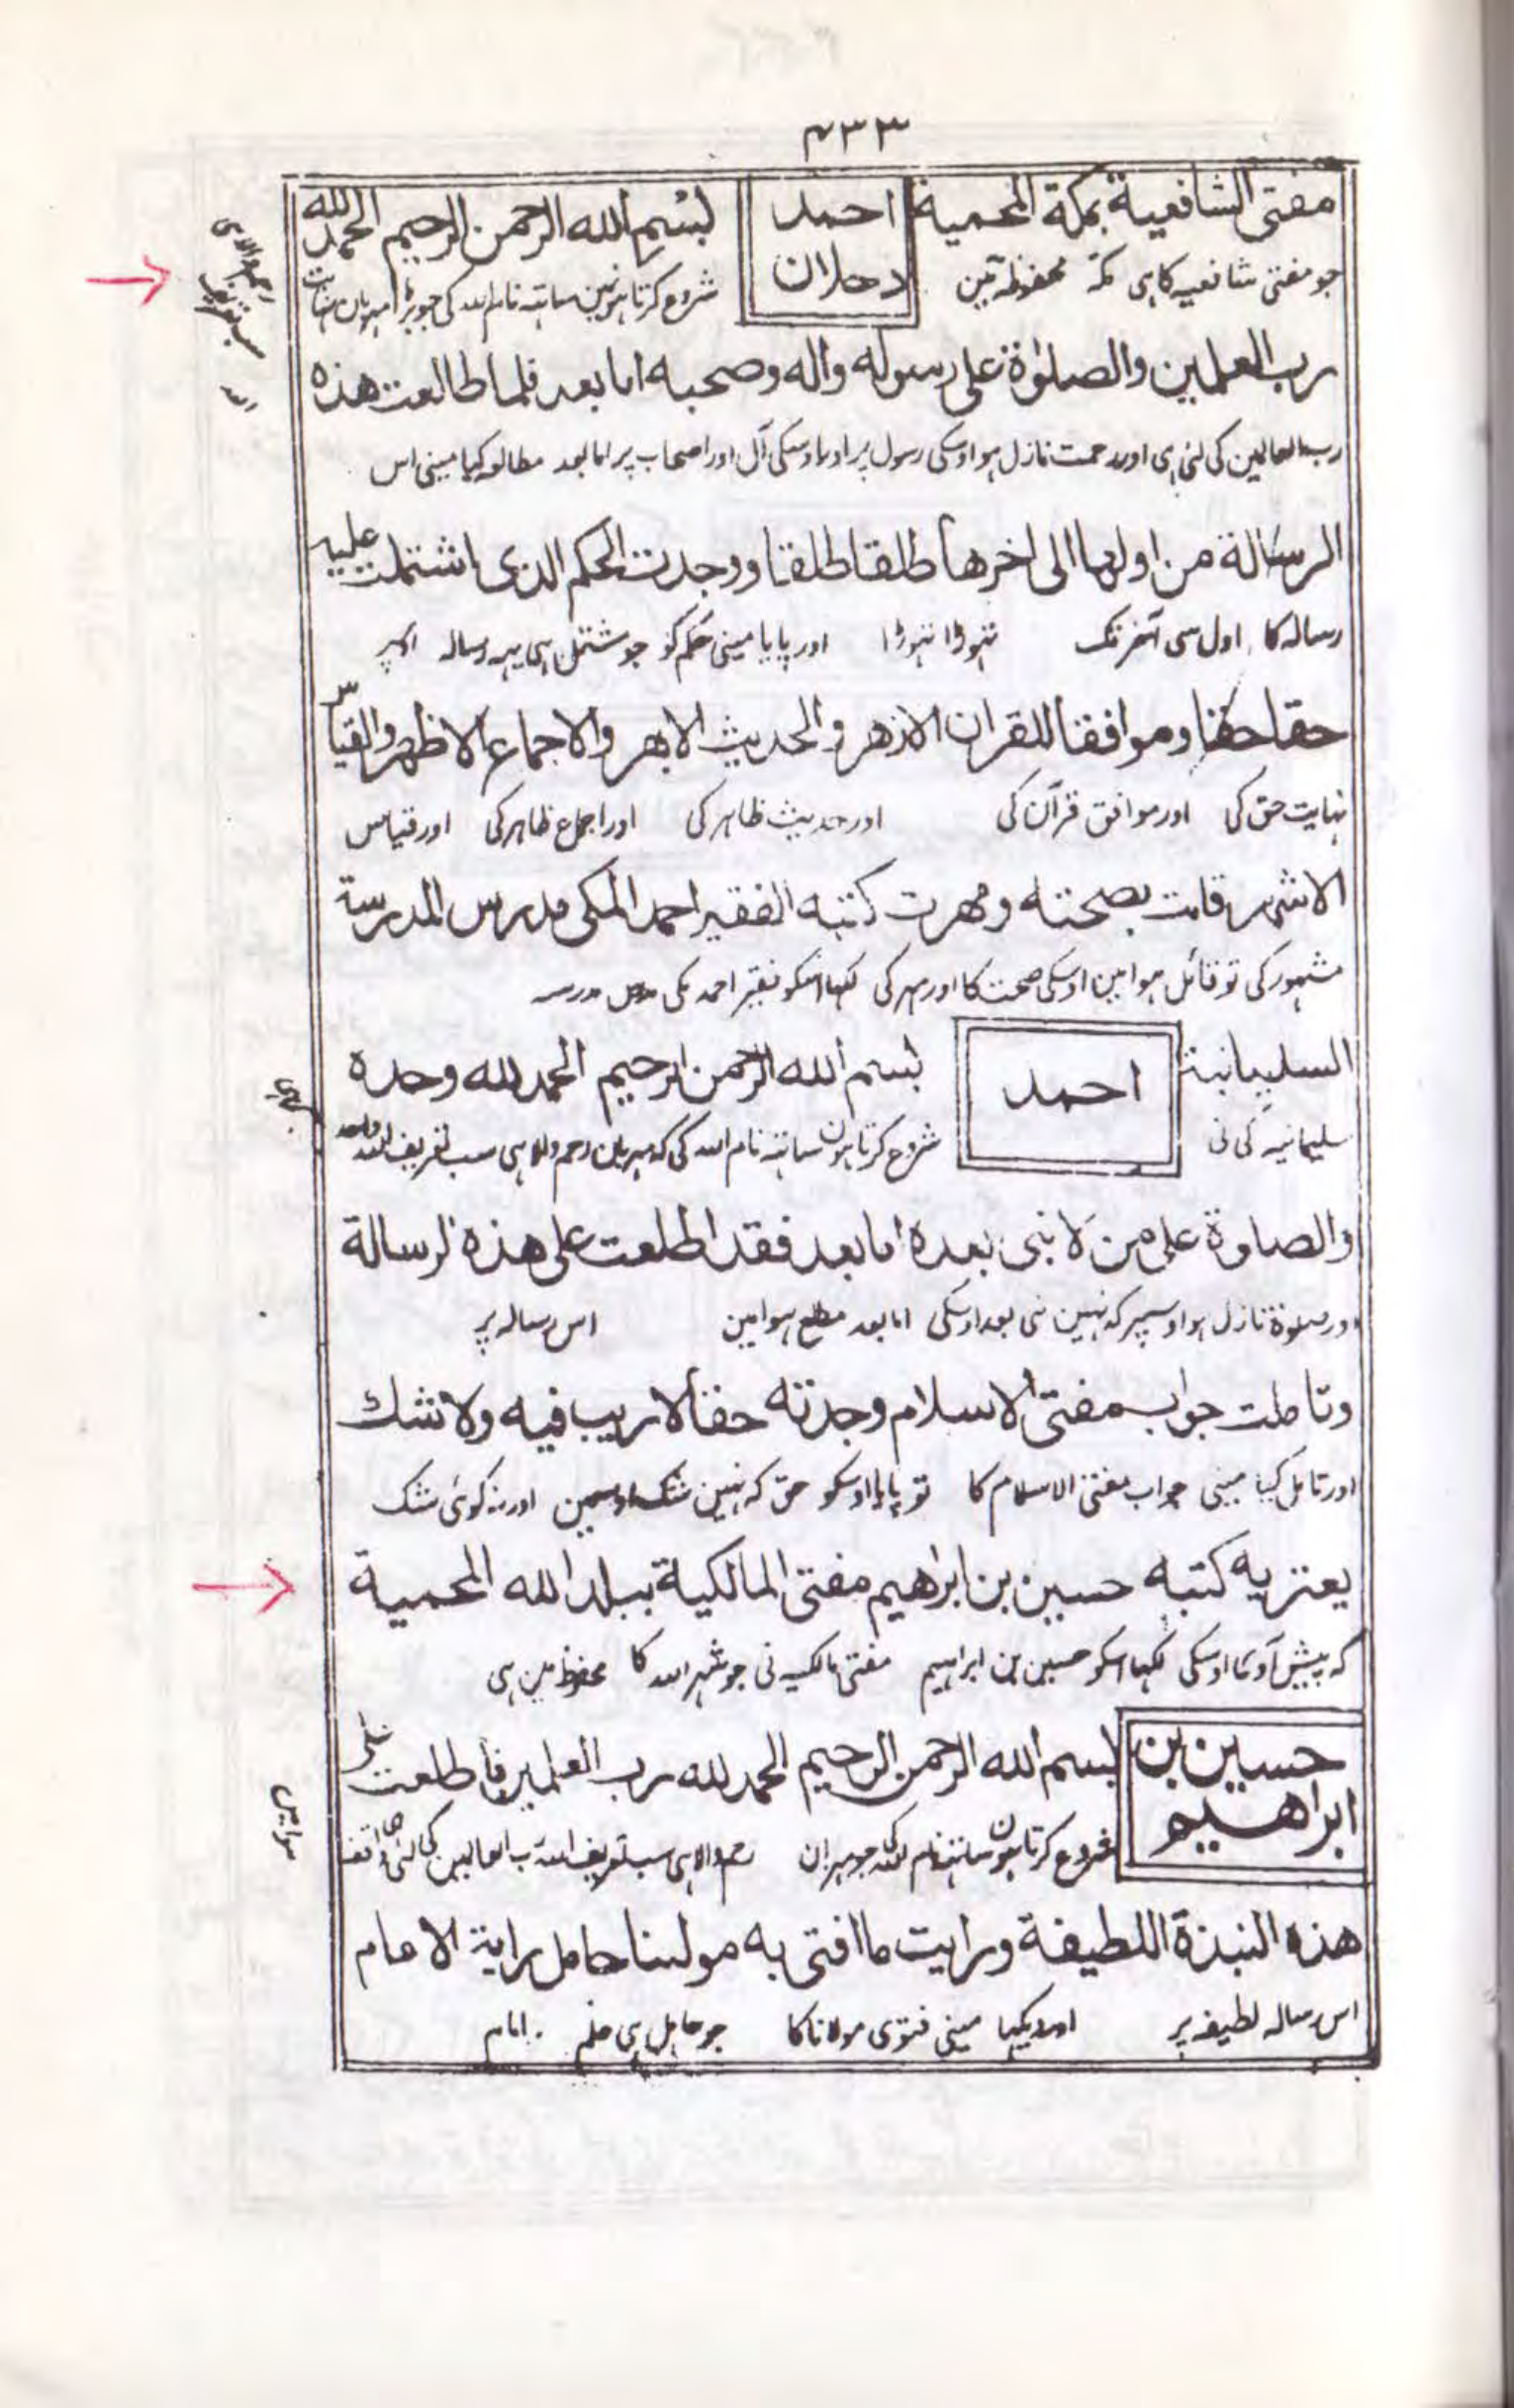 ۴۳۳
مفتی الشافعیة بمکة المحمیة احمد دحلان بسم الله الرحمن الرحیم الحمد لله
جو مفتی شافعیہ کا ہی مکہ محفوظہ مین شروع کرتا ہون مین ساتہہ نام اللہ کی جو بڑا مہربان نہایت
رحم والا ہی سب تعریف اللہ
رب العلمین والصلوٰة علی رسوله واله وصحبه اما بعد فلما طالعت هذه
رب العالمین کی لئی ہی اور رحمت نازل ہو اوسکی رسول پر اور اوسکی آل اور اصحاب پر اما بعد مطالعہ کیا مینی اس
الرسالة من اولها الی اخرها طلقا طلقا ووجدت الحکم الذی اشتملت علیه
رسالہ کا اول سی آخر تک تہوڑا تہوڑا اور پایا مینی حکم کو جو مشتمل ہی یہہ رسالہ اوپر
حقا حقا وموافقا للقران الازهر والحدیث الابهر والاجماع الاظهر والقیاس
نہایت حق کی اور موافق قرآن کی اور حدیث ظاہر کی اور اجماع ظاہر کی اور قیاس
الاشهر قلت بصحته ومهرت کتبه الفقیر احمد المکی مدرس المدرسة
مشہور کی تو قائل ہوا مین اوسکی صحت کا اور مہر کی لکہا اسکو فقیر احمد مکی مدرس مدرسہ
السلیمانیة احمد بسم الله الرحمن الرحیم الحمد لله وحده
سلیمانیہ کی نی شروع کرتا ہون ساتہہ نام اللہ کی کہ مہربان رحم والا ہی سب تعریف اللہ واحد
والصلوة علی من لا نبی بعده اما بعد فقد اطلعت علی هذه الرسالة
اور صلوٰة نازل ہو اوسپر کہ نہین نبی بعد اوسکی اما بعد مطلع ہوا مین اس رسالہ پر
وتاملت جواب مفتی الاسلام وجدته حقا لا ریب فیه ولا شک
اور تامل کیا مینی جواب مفتی الاسلام کا تو پایا اوسکو حق کہ نہین شک اوسمین اور نہ کوئی شک
یعتریه کتبه حسین بن ابراهیم مفتی المالکیة ببلد الله المحمیة
کہ پیش آوی اوسکی لکہا اسکو حسین بن ابراہیم مفتی مالکیہ نی جو شہر اللہ کا محفوظ مین ہی
حسین بن ابراهیم بسم الله الرحمن الرحیم الحمد لله رب العلمین فاطلعت علی
شروع کرتا ہون ساتہہ نام اللہ کی جو مہربان رحم والا ہی سب تعریف اللہ رب العالمین کی لئی ہی واقف
ہوا مین
هذه النبذة اللطیفة ورایت ما افتی به مولینا حامل رایة الامام
اس رسالہ لطیفہ پر اور دیکہا مینی فتوی مولانا کا جو حامل ہی علم امام